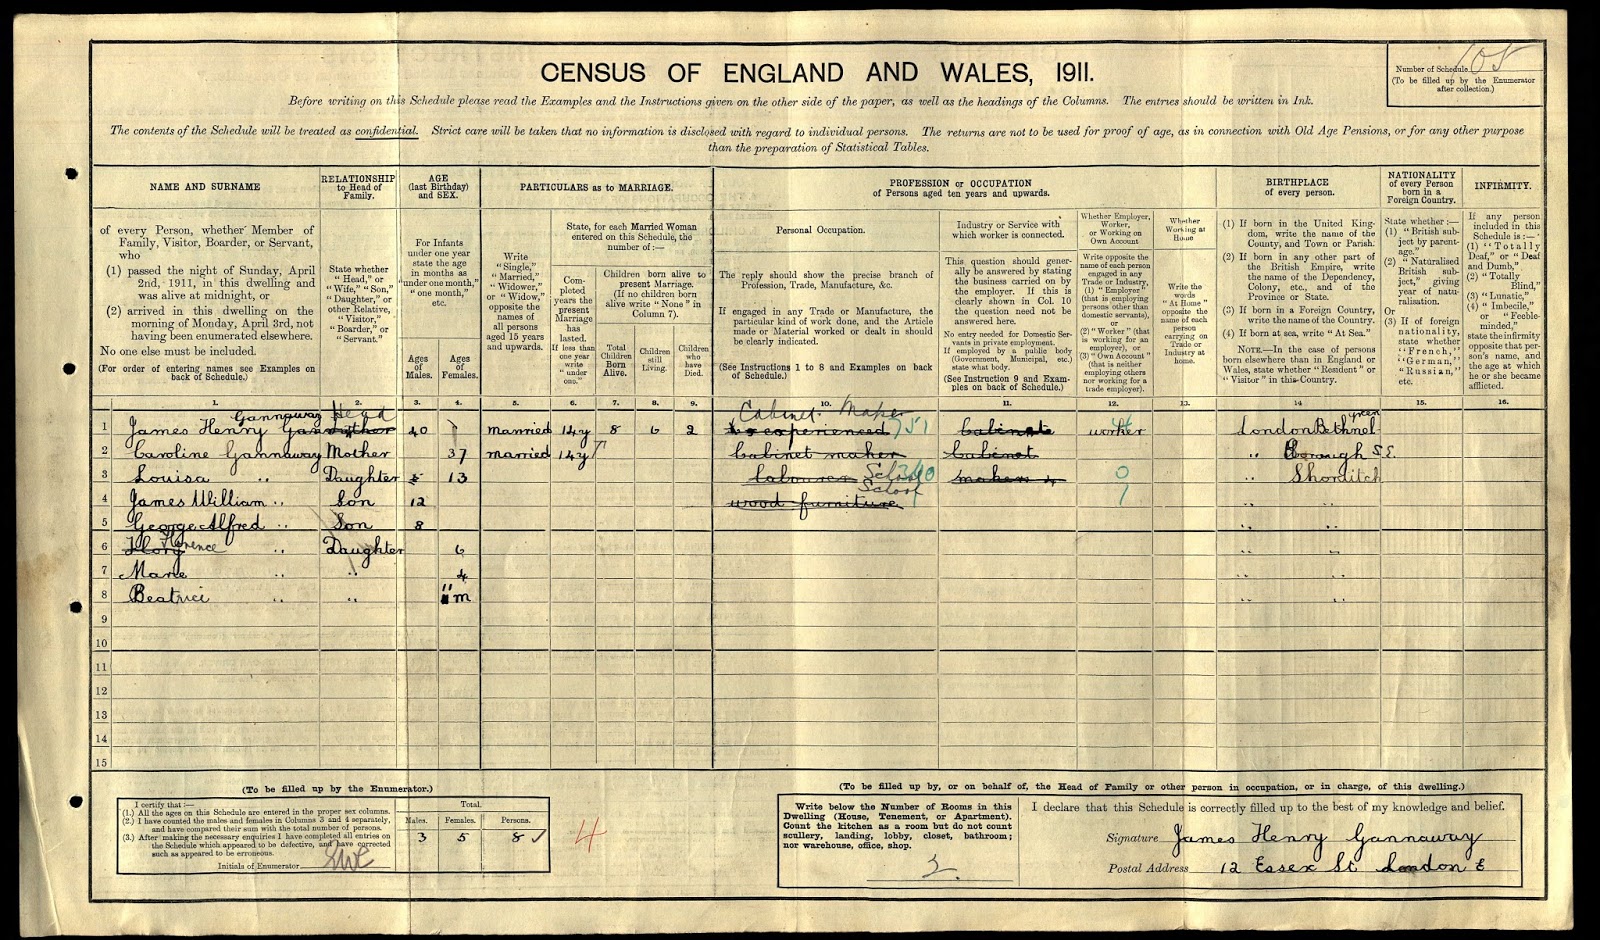 CENSUS OF ENGLAND AND WALES, 1911.
Number of Schedule 105
(To be filled up by the Enumerator
after collection.)
Before writing on this Schedule please read the Examples and the Instructions given on the other side of the paper, as well as the headings of the Columns. The entries should be written in Ink.
The contents of the Schedule will be treated as confidential. Strict care will be taken that no information is disclosed with regard to individual persons. The returns are not to be used for proof of age, as in connection with Old Age Pensions, or for any other purpose
than the preparation of Statistical Tables.
NAME AND SURNAME
of every Person, whether Member of
Family, Visitor, Boarder, or Servant,
who
(1) passed the night of Sunday, April
2nd, 1911, in this dwelling and
was alive at midnight, or
(2) arrived in this dwelling on the
morning of Monday, April 3rd, not
having been enumerated elsewhere.
No one else must be included.
(For order of entering names see Examples on
back of Schedule.)
RELATIONSHIP
to Head of
Family.
State whether
"Head," or
"Wife," "Son,"
"Daughter," or
other Relative,
"Visitor,"
"Boarder," or
"Servant."
AGE
(last Birthday)
and SEX.
For Infants
under one year
state the age
in months as
"under one month,"
"one month,"
etc.
Ages
of
Males.
Ages
of
Females.
PARTICULARS as to MARRIAGE.
Write
"Single,"
"Married,"
"Widower,"
or "Widow,"
opposite the
names of
all persons
aged 15 years
and upwards.
State, for each Married Woman
entered on this Schedule, the
number of:—
Com-
pleted
years the
present
Marriage
has
lasted.
If less than
one year
write
"under
one."
Children born alive to
present Marriage.
(If no children born
alive write "None" in
Column 7).
Total
Children
Born
Alive.
Children
still
Living.
Children
who
have
Died.
PROFESSION or OCCUPATION
of Persons aged ten years and upwards.
Personal Occupation.
The reply should show the precise branch of
Profession, Trade, Manufacture, &c.
If engaged in any Trade or Manufacture, the
particular kind of work done, and the Article
made or Material worked or dealt in should
be clearly indicated.
(See Instructions 1 to 8 and Examples on back
of Schedule.)
Industry or Service with
which worker is connected.
This question should gener-
ally be answered by stating
the business carried on by
the employer. If this is
clearly shown in Col. 10
the question need not be
answered here.
No entry needed for Domestic Ser-
vants in private employment.
If employed by a public body
(Government, Municipal, etc.)
state what body.
(See Instruction 9 and Exam-
ples on back of Schedule.)
Whether Employer,
Worker,
or Working on
Own Account
Write opposite the
name of each person
engaged in any
Trade or Industry,
(1) "Employer"
(that is employing
persons other than
domestic servants),
or
(2) "Worker" (that
is working for an
employer), or
(3) "Own Account"
(that is neither
employing others
nor working for a
trade employer).
Whether
Working at
Home
Write the
words
"At Home"
opposite the
name of each
person
carrying on
Trade or
Industry at
home.
BIRTHPLACE
of every person.
(1) If born in the United King-
dom, write the name of the
County, and Town or Parish.
(2) If born in any other part of
the British Empire, write
the name of the Dependency,
Colony, etc., and of the
Province or State.
(3) If born in a Foreign Country,
write the name of the Country.
(4) If born at sea, write "At Sea."
NOTE.—In the case of persons
born elsewhere than in England or
Wales, state whether "Resident" or
"Visitor" in this Country.
NATIONALITY
of every Person
born in a
Foreign Country.
State whether:—
(1) "British sub-
ject by parent-
age."
(2) "Naturalised
British sub-
ject," giving
year of natu-
ralisation.
Or
(3) If of foreign
nationality,
state whether
"French,"
"German,"
"Russian,"
etc.
INFIRMITY.
If any person
included in this
Schedule is:—
(1) "Totally
Deaf," or "Deaf
and Dumb,"
(2) "Totally
Blind,"
(3) "Lunatic,"
(4) "Imbecile,"
or "Feeble-
minded,"
state the infirmity
opposite that per-
son's name, and
the age at which
he or she became
afflicted.
1. 2. 3. 4. 5. 6. 7. 8. 9. 10. 11. 12. 13. 14 15. 16.
Gannaway Head Cabinet Maker green
1 James Henry 40 married 14y 8 6 2 experienced 751 Cabinate worker London Bethnel
2 Caroline Gannaway Mother 37 married 14y Cabinet maker Cabinet " Borough S.E.
3 Louisa " Daughter 13 School 340 0 " Shorditch
4 James William " Son 12 wood furniture School " "
5 George Alfred " Son 8 " "
6 Florence " Daughter 6 " "
7 Marie " " 4 " "
8 Beatrice " " 11 m " "
9
10
11
12
13
14
15
(To be filled up by the Enumerator.)
I certify that:—
(1.) All the ages on this Schedule are entered in the proper sex columns.
(2.) I have counted the males and females in Columns 3 and 4 separately,
and have compared their sum with the total number of persons.
(3.) After making the necessary enquiries I have completed all entries on
the Schedule which appeared to be defective, and have corrected
such as appeared to be erroneous.
Initials of Enumerator
Total.
Males. Females. Persons.
3 5 8
4
(To be filled up by, or on behalf of, the Head of Family or other person in occupation, or in charge, of this dwelling.)
Write below the Number of Rooms in this
Dwelling (House, Tenement, or Apartment).
Count the kitchen as a room but do not count
scullery, landing, lobby, closet, bathroom;
nor warehouse, office, shop.
I declare that this Schedule is correctly filled up to the best of my knowledge and belief.
Signature James Henry Gannaway
Postal Address 12 Essex St London E